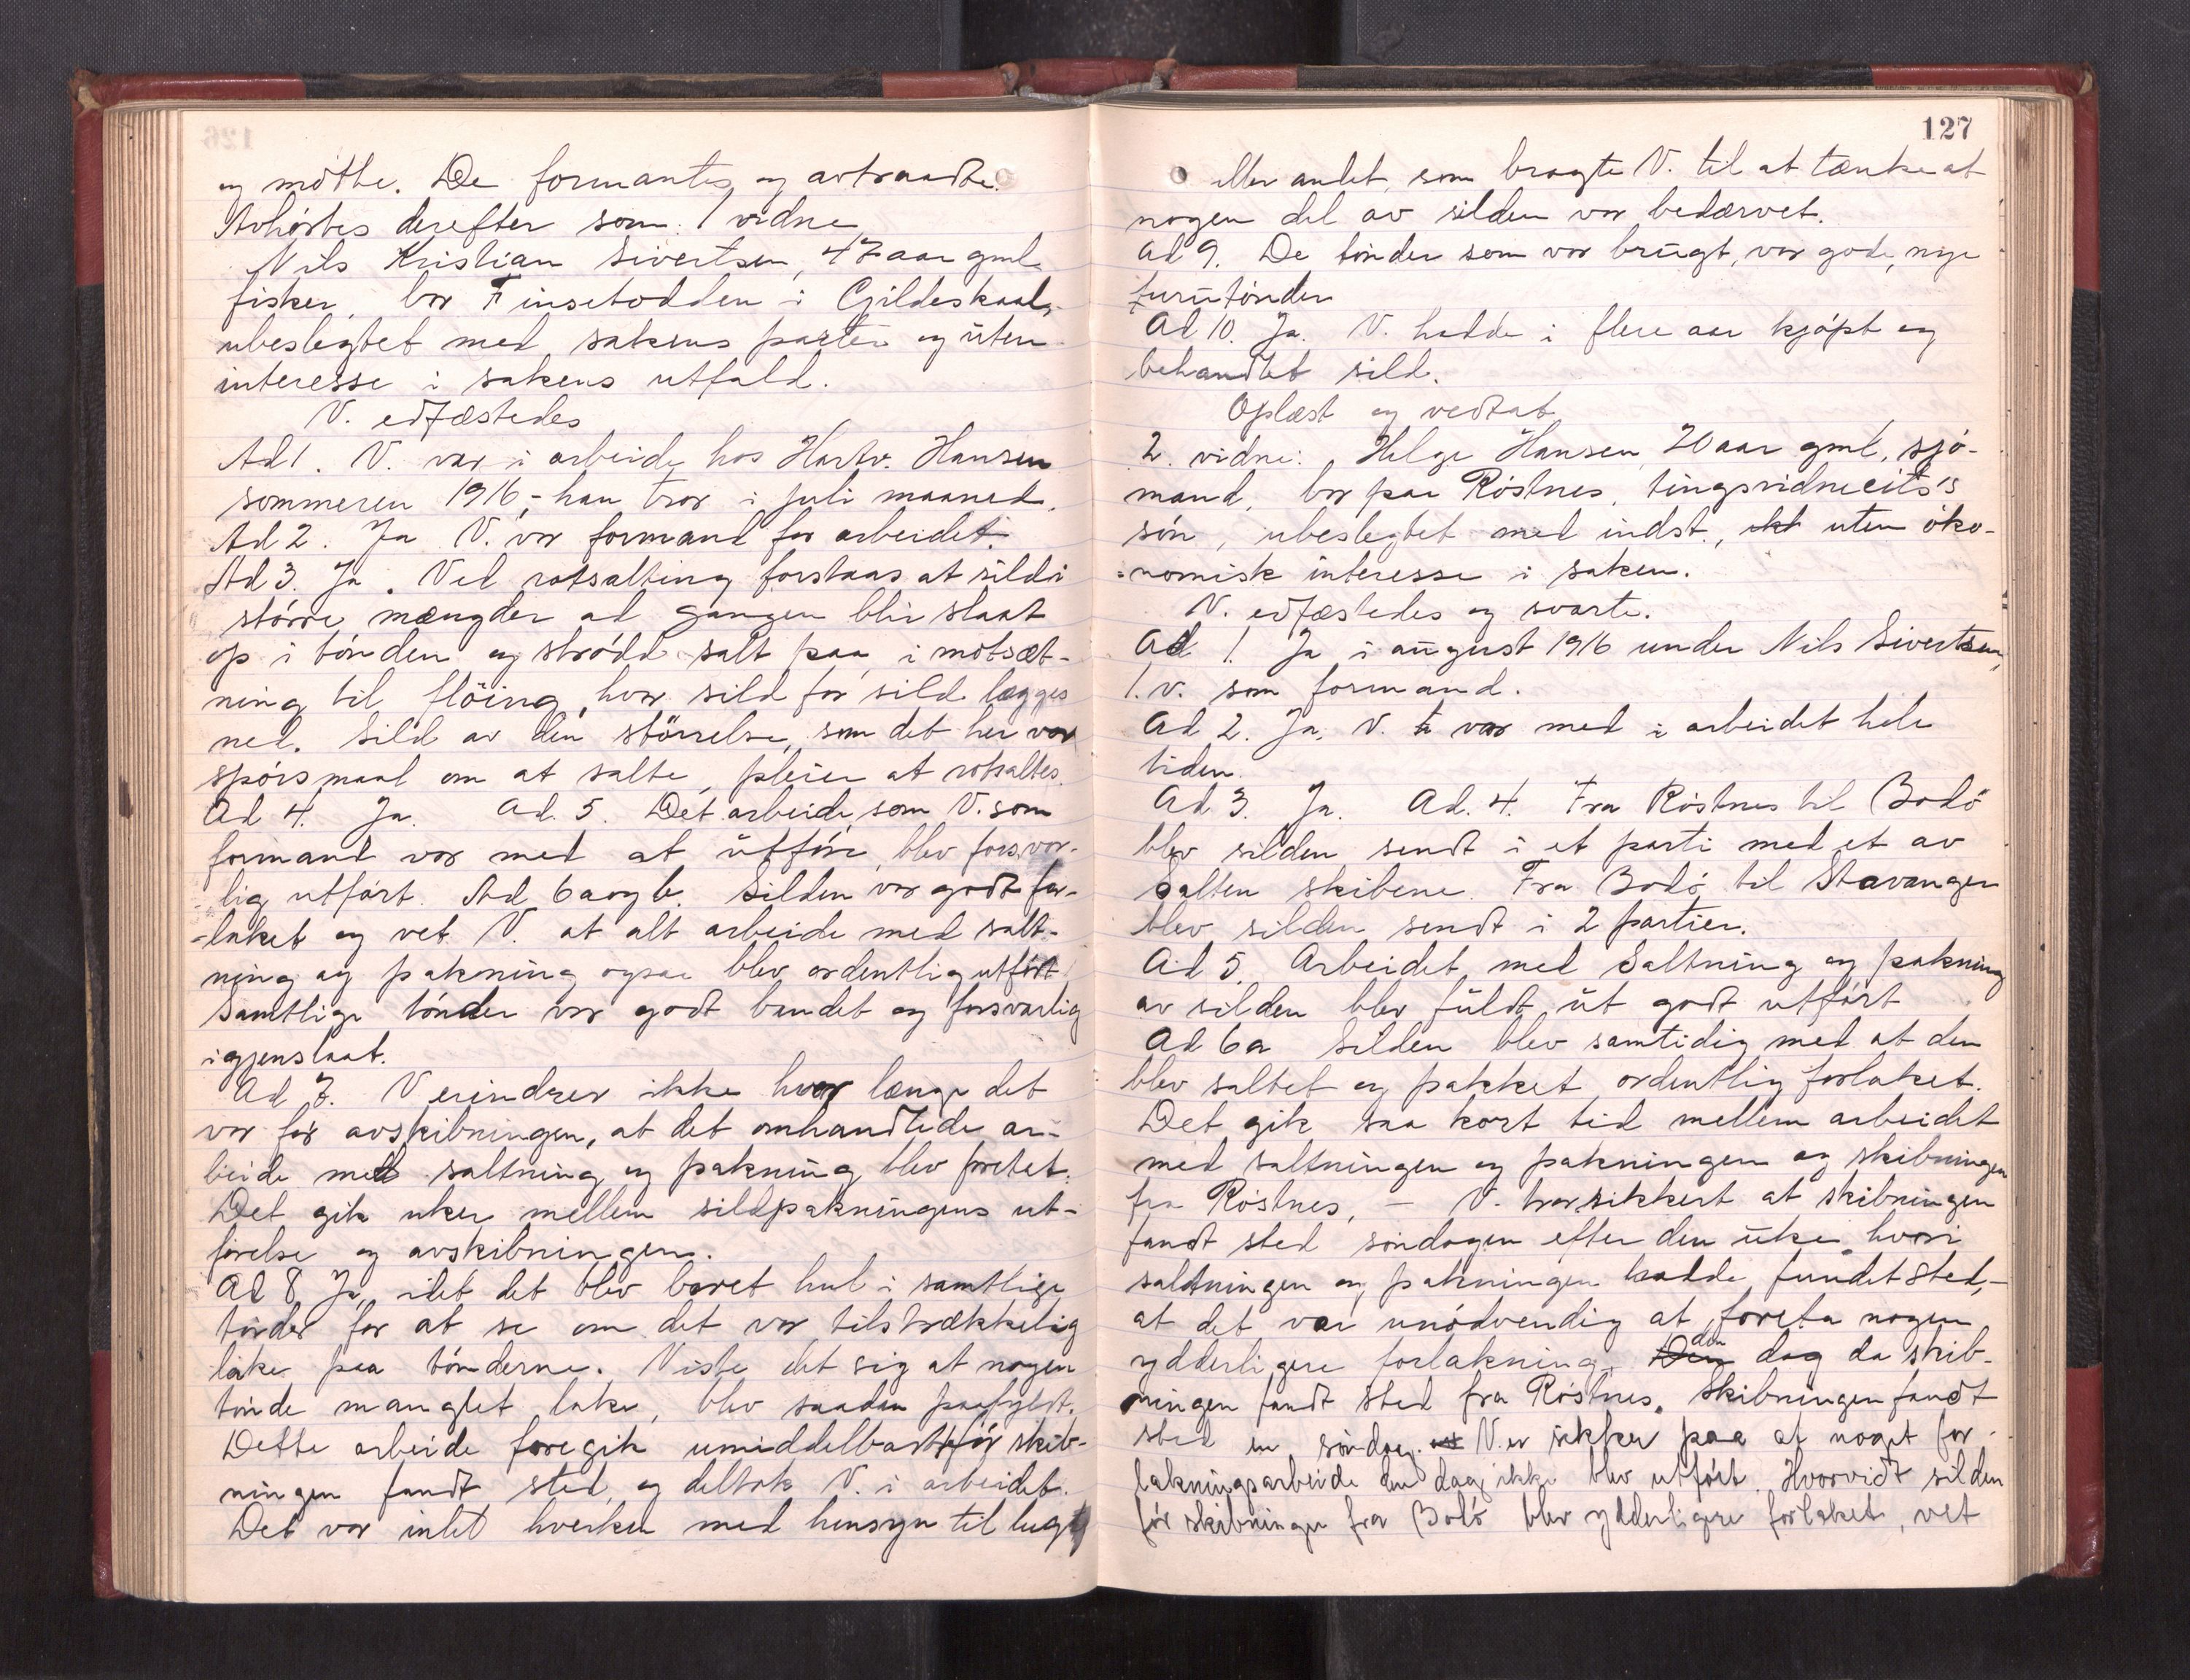 og mötte. De formantes og avtraadte.
Avhörtes derefter som 1 vidne
Nils Kristian Sivertsen, 47 aar gml.
fisker, bor Finsetodden i Gildeskaal,
ubeslegtet med sakens parter og uten
interesse i sakens utfald.
V. edfæstedes
Ad 1. V. var i arbeide hos Hartv. Hansen
sommeren 1916, - han tror i juli maaned.
Ad 2. Ja V. var formand for arbeidet.
Ad 3. Ja. Ved rotsalting forstaas at sild i
större mængder ad gangen blir slaat
op i tönden og strödd salt paa i motsæt-
ning til flöing, hvor sild for sild lægges
ned. Sild av den störrelse, som det her var
spörsmaal om at salte, pleier at rotsaltes.
Ad 4. Ja. Ad. 5. Det arbeide, som V. som
formand var med at utföre, blev forsvar-
lig utfört. Ad 6a og b. Silden var godt for-
-laket og vet V. at alt arbeide med salt-
ning og pakning ogsaa blev ordentlig utfört.
Samtlige tönder var godt bundet og forsvarlig
igjenslaat.
Ad 7. V erindrer ikke hvor længe det
var för avskibningen, at det omhandlede ar-
beide med saltning og pakning blev foretat.
Det gik uker mellem sildpakningens ut-
förelse og avskibningen.
Ad 8 Ja, idet det blev boret hul i samtlige
tönder for at se om det var tilstrækkelig
lake paa tönderne. Viste det sig at nogen
tönde manglet lake, blev saadan paafyldt.
Dette arbeide foregik umiddelbart för skib-
ningen fandt sted, og deltok V. i arbeidet.
Det var intet hverken med hensyn til lugt
127
eller andet, som bragte V. til at tænke at
nogen del av silden var bedærvet.
Ad 9. De tönder som var brugt, var gode, nye
furutönder
Ad 10. Ja. V. hadde i flere aar kjöpt og
behandlet sild.
Oplæst og vedtat
2. vidne: Helge Hansen 20 aar gml, sjö-
mand, bor paa Röstnes, tingsvidnecits's
sön, ubeslegtet med indst., ikk uten öko-
nomisk interesse i saken.
V. edfæstedes og svarte.
Ad 1. Ja i august 1916 under Nils Sivertsen,
1. v. som formand.
Ad 2. Ja. V. var med i arbeidet hele
tiden.
Ad 3. Ja. Ad. 4. Fra Röstnes til Bodö
blev silden sendt i et parti med et av
Salten skibene. Fra Bodö til Stavanger
blev silden sendt i 2 partier.
Ad 5. Arbeidet med Saltning og pakning
av silden blev fuldt ut godt utfört
Ad 6a Silden blev samtidig med at den
blev saltet og pakket ordentlig forlaket.
Det gik saa kort tid mellem arbeidet
med saltningen og pakningen og skibningen
fra Röstnes, - V. tror sikkert at skibningen
fandt sted söndagen efter den uke, hvori
saltningen og pakningen hadde fundet sted, -
at det var unödvendig at foreta nogen
ydderligere forlakning. Den den dag da skib-
ningen fandt sted fra Röstnes. Skibningen fandt
sted en söndag. V. er sikker paa at noget for-
lakningsarbeide den dag ikke blev utfört. Hvorvidt silden
för skibningen fra Bodö blev ydderligere forlaket, vet